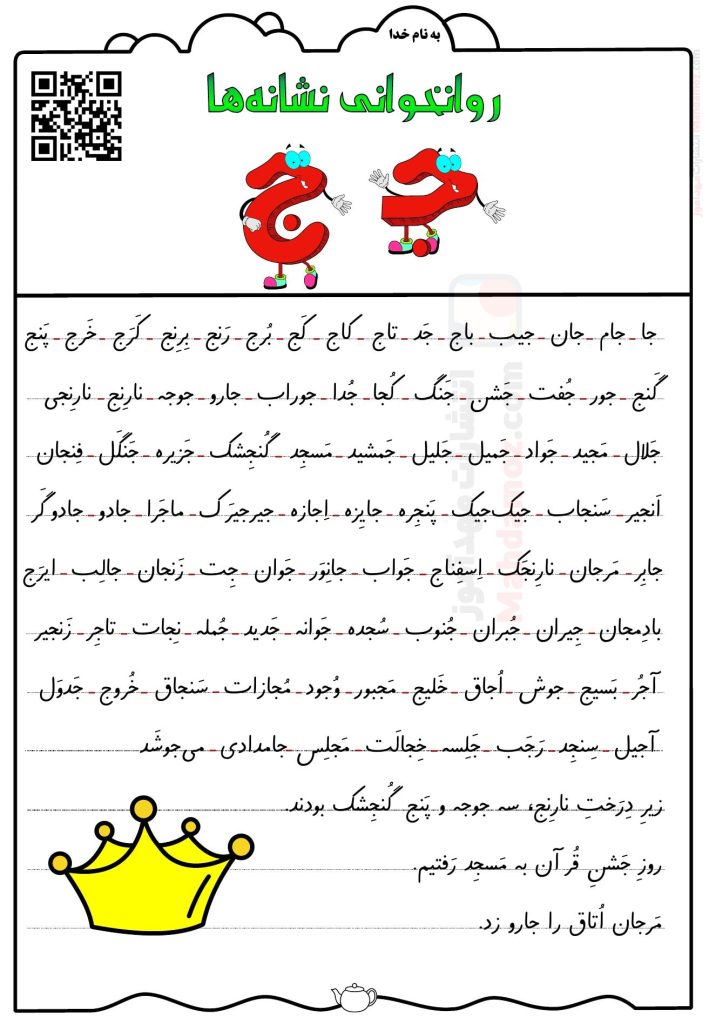 به نام خدا
روانخوانی نشانه‌ها
جـ ج
جا - جام - جان - جیب - باج - جَد - تاج - کاج - کَج - بُرج - رَنج - بِرِنج - کَرَج - خَرج - پَنج
گَنج - جور - جُفت - جَشن - جَنگ - کُجا - جُدا - جوراب - جارو - جوجه - نارِنج - نارِنجی
جَلال - مَجید - جَواد - جَمیل - جَلیل - جَمشید - مَسجِد - گُنجِشک - جَزیره - جَنگَل - فِنجان
اَنجیر - سَنجاب - جیک‌جیک - پَنجِره - جایِزه - اِجازه - جیرجیرَک - ماجَرا - جادو - جادوگَر
جابِر - مَرجان - نارِنجَک - اِسفِناج - جَواب - جانِوَر - جَوان - جِت - زَنجان - جالِب - ایرَج
بادِمجان - جِیران - جُبران - جُنوب - سُجده - جَوانه - جَدید - جُمله - نِجات - تاجِر - زَنجیر
آجُر - بَسیج - جوش - اُجاق - خَلیج - مَجبور - وُجود - مُجازات - سَنجاق - خُروج - جَدوَل
آجیل - سِنجِد - رَجَب - جَلِسه - خِجالَت - مَجلِس - جامدادی - می‌جوشَد
زیرِ دِرَختِ نارِنج، سه جوجه و پَنج گُنجِشک بودند.
روزِ جَشنِ قُرآن به مَسجِد رَفتیم.
مَرجان اُتاق را جارو زد.
انتشارات مهدآموز
Mahdamoz.com